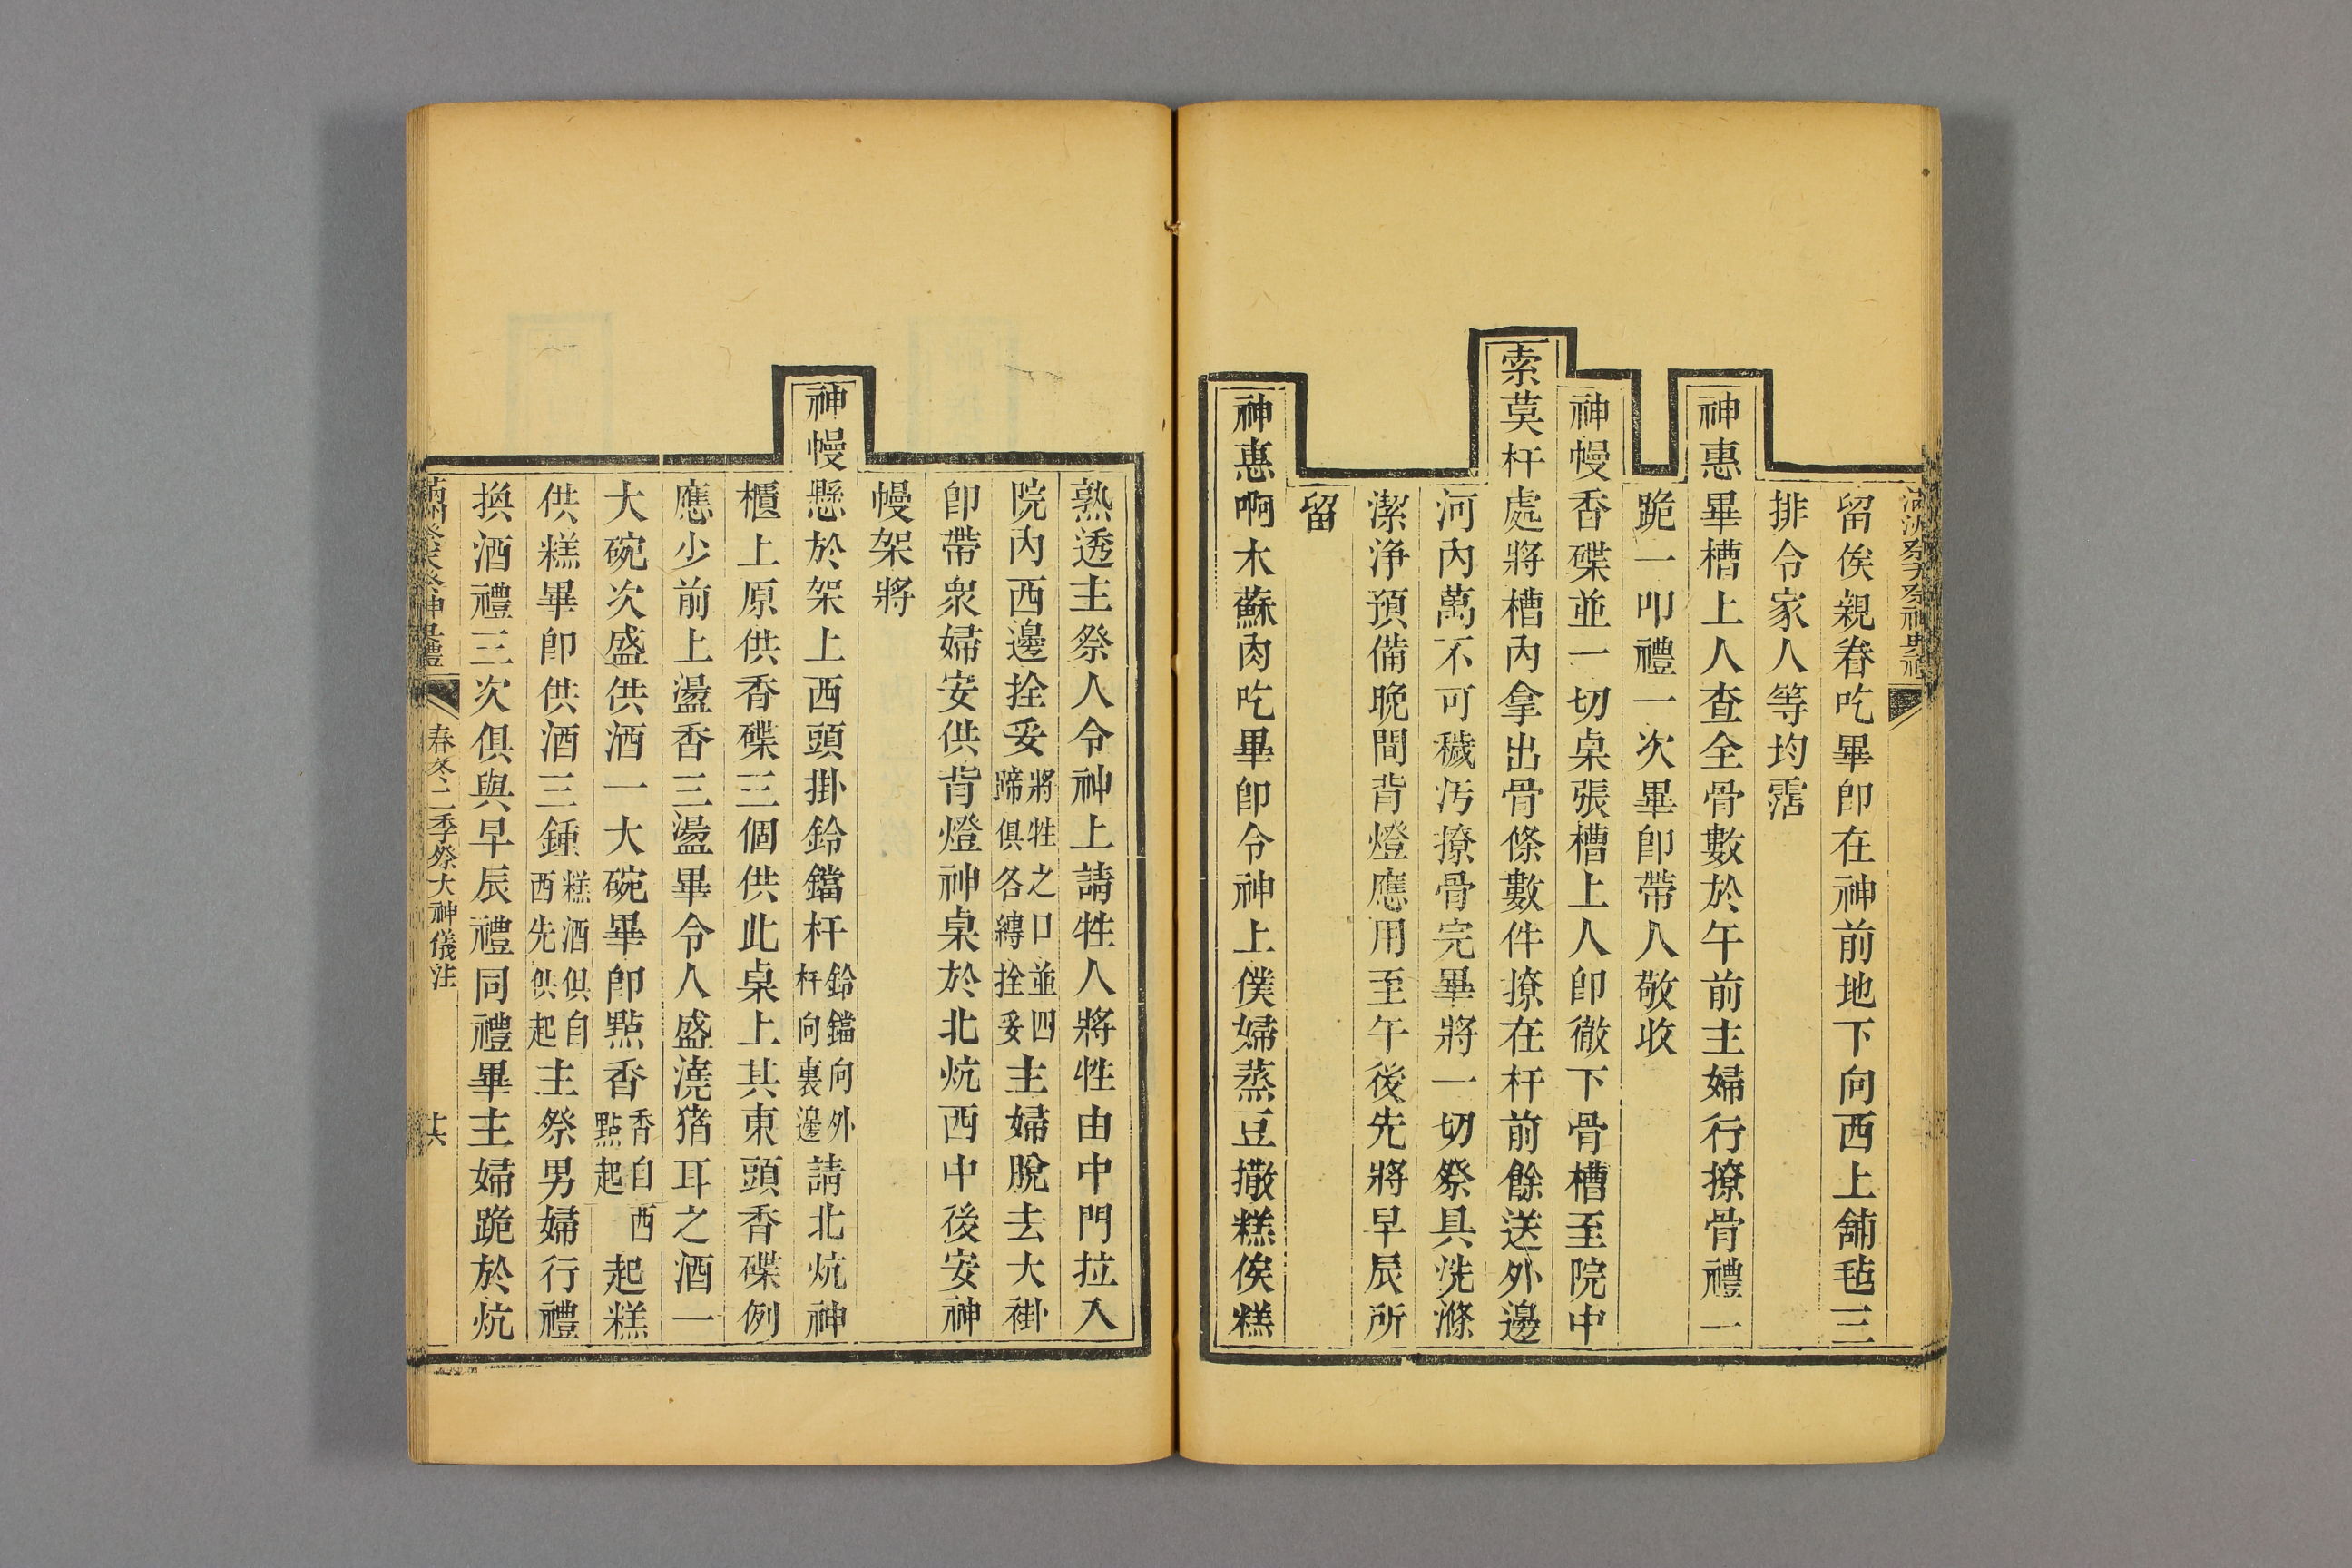 留俟親眷吃畢卽在神前地下向西上舖毡三
排令家人等均霑
神惠畢槽上人查全骨數於午前主婦行撩骨禮一
跪一叩禮一次畢卽帶人敬收
神幔香碟並一切桌張槽上人卽徹下骨槽至院中
索莫杆處將槽內拿出骨條數件撩在杆前餘送外邊
河內萬不可穢汚撩骨完畢將一切祭具洗滌
潔浄預備晩間背燈應用至午後先將早辰所
留
神惠啊木蘇肉吃畢卽令神上僕婦蒸豆撒糕俟糕
熟透主祭人令神上請牲人將牲由中門拉入
院內西邊拴妥將牲之口並四蹄俱各縛拴妥主婦脫去大褂
卽帶衆婦安供背燈神桌於北炕西中後安神
幔架將
神幔懸於架上西頭掛鈴鐺杆鈴鐺向外杆向裏邊請北炕神
櫃上原供香碟三個供此桌上其東頭香碟例
應少前上盪香三盪畢令人盛湰猶耳之酒一
大碗次盛供酒一大碗畢卽點香香自西點起起糕
供糕畢卽供酒三鍾糕酒俱自西先供起主祭男婦行禮
換酒禮三次俱與早辰禮同禮畢主婦跪於炕
滿洲祭天祭神典禮 春冬二季祭大神儀注 廿六